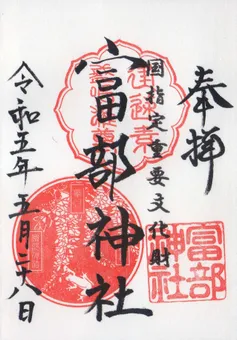 奉拝
国指定重要文化財
富部神社
令和五年五月二十八日
富部神社